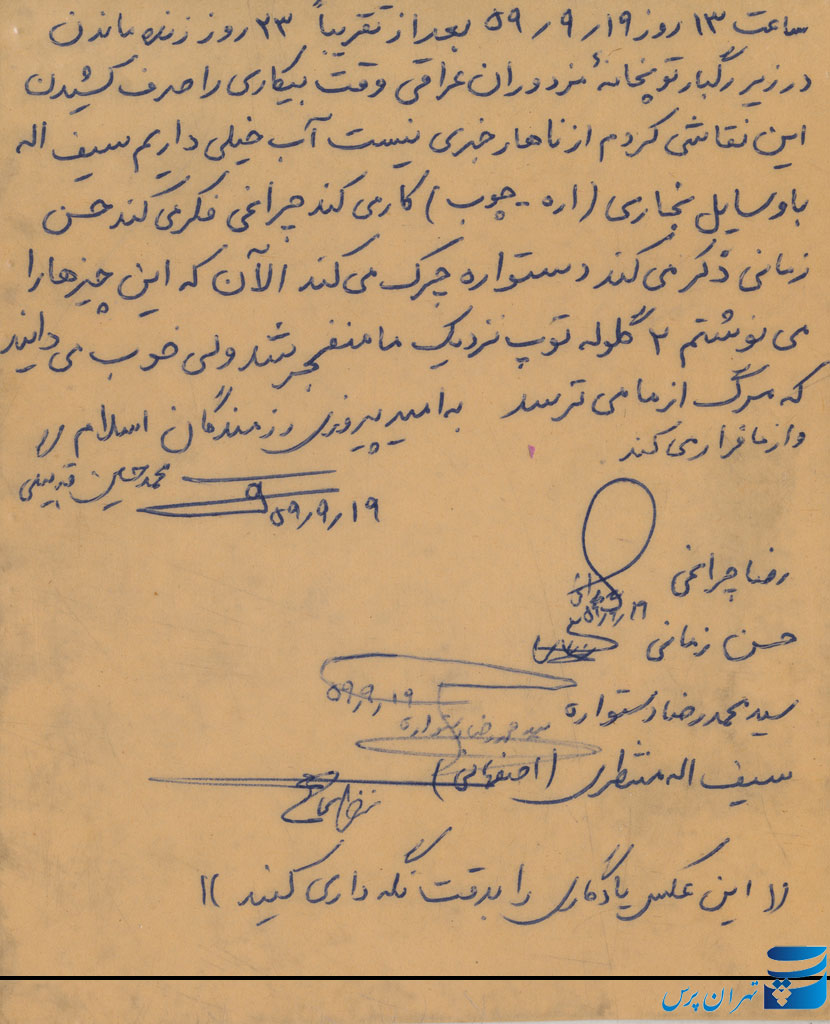 ساعت ۱۳ روز ۵۹/۹/۱۹ بعد از تقریباً ۲۳ روز زنده ماندن
در زیر رگبار توپخانهٔ مزدوران عراقی وقت بیکاری را صرف کشیدن
این نقاشی کردم از ناهار خبری نیست آب خیلی داریم سیف اله
با وسایل نجاری (اره - چوب) کار می کند چراغی فکر می کند حسن
زمانی ذکر می کند دستواره چرک می کند الآن که این چیزها را
می نوشتم ۲ گلوله توپ نزدیک ما منفجر شد ولی خوب می دانید
که مرگ از ما می ترسد به امید پیروزی رزمندگان اسلام
و از ما فرار می کند
محمد حسین
۵۹/۹/۱۹
رضا چراغی
حسن زمانی
۵۹/۹/۱۹
سید محمدرضا دستواره
سید محمدرضا دستواره
سیف اله منتظری (اصفهانی)
(( این عکس یادگاری را بدقت نگه داری کنید ))
تهران پرس